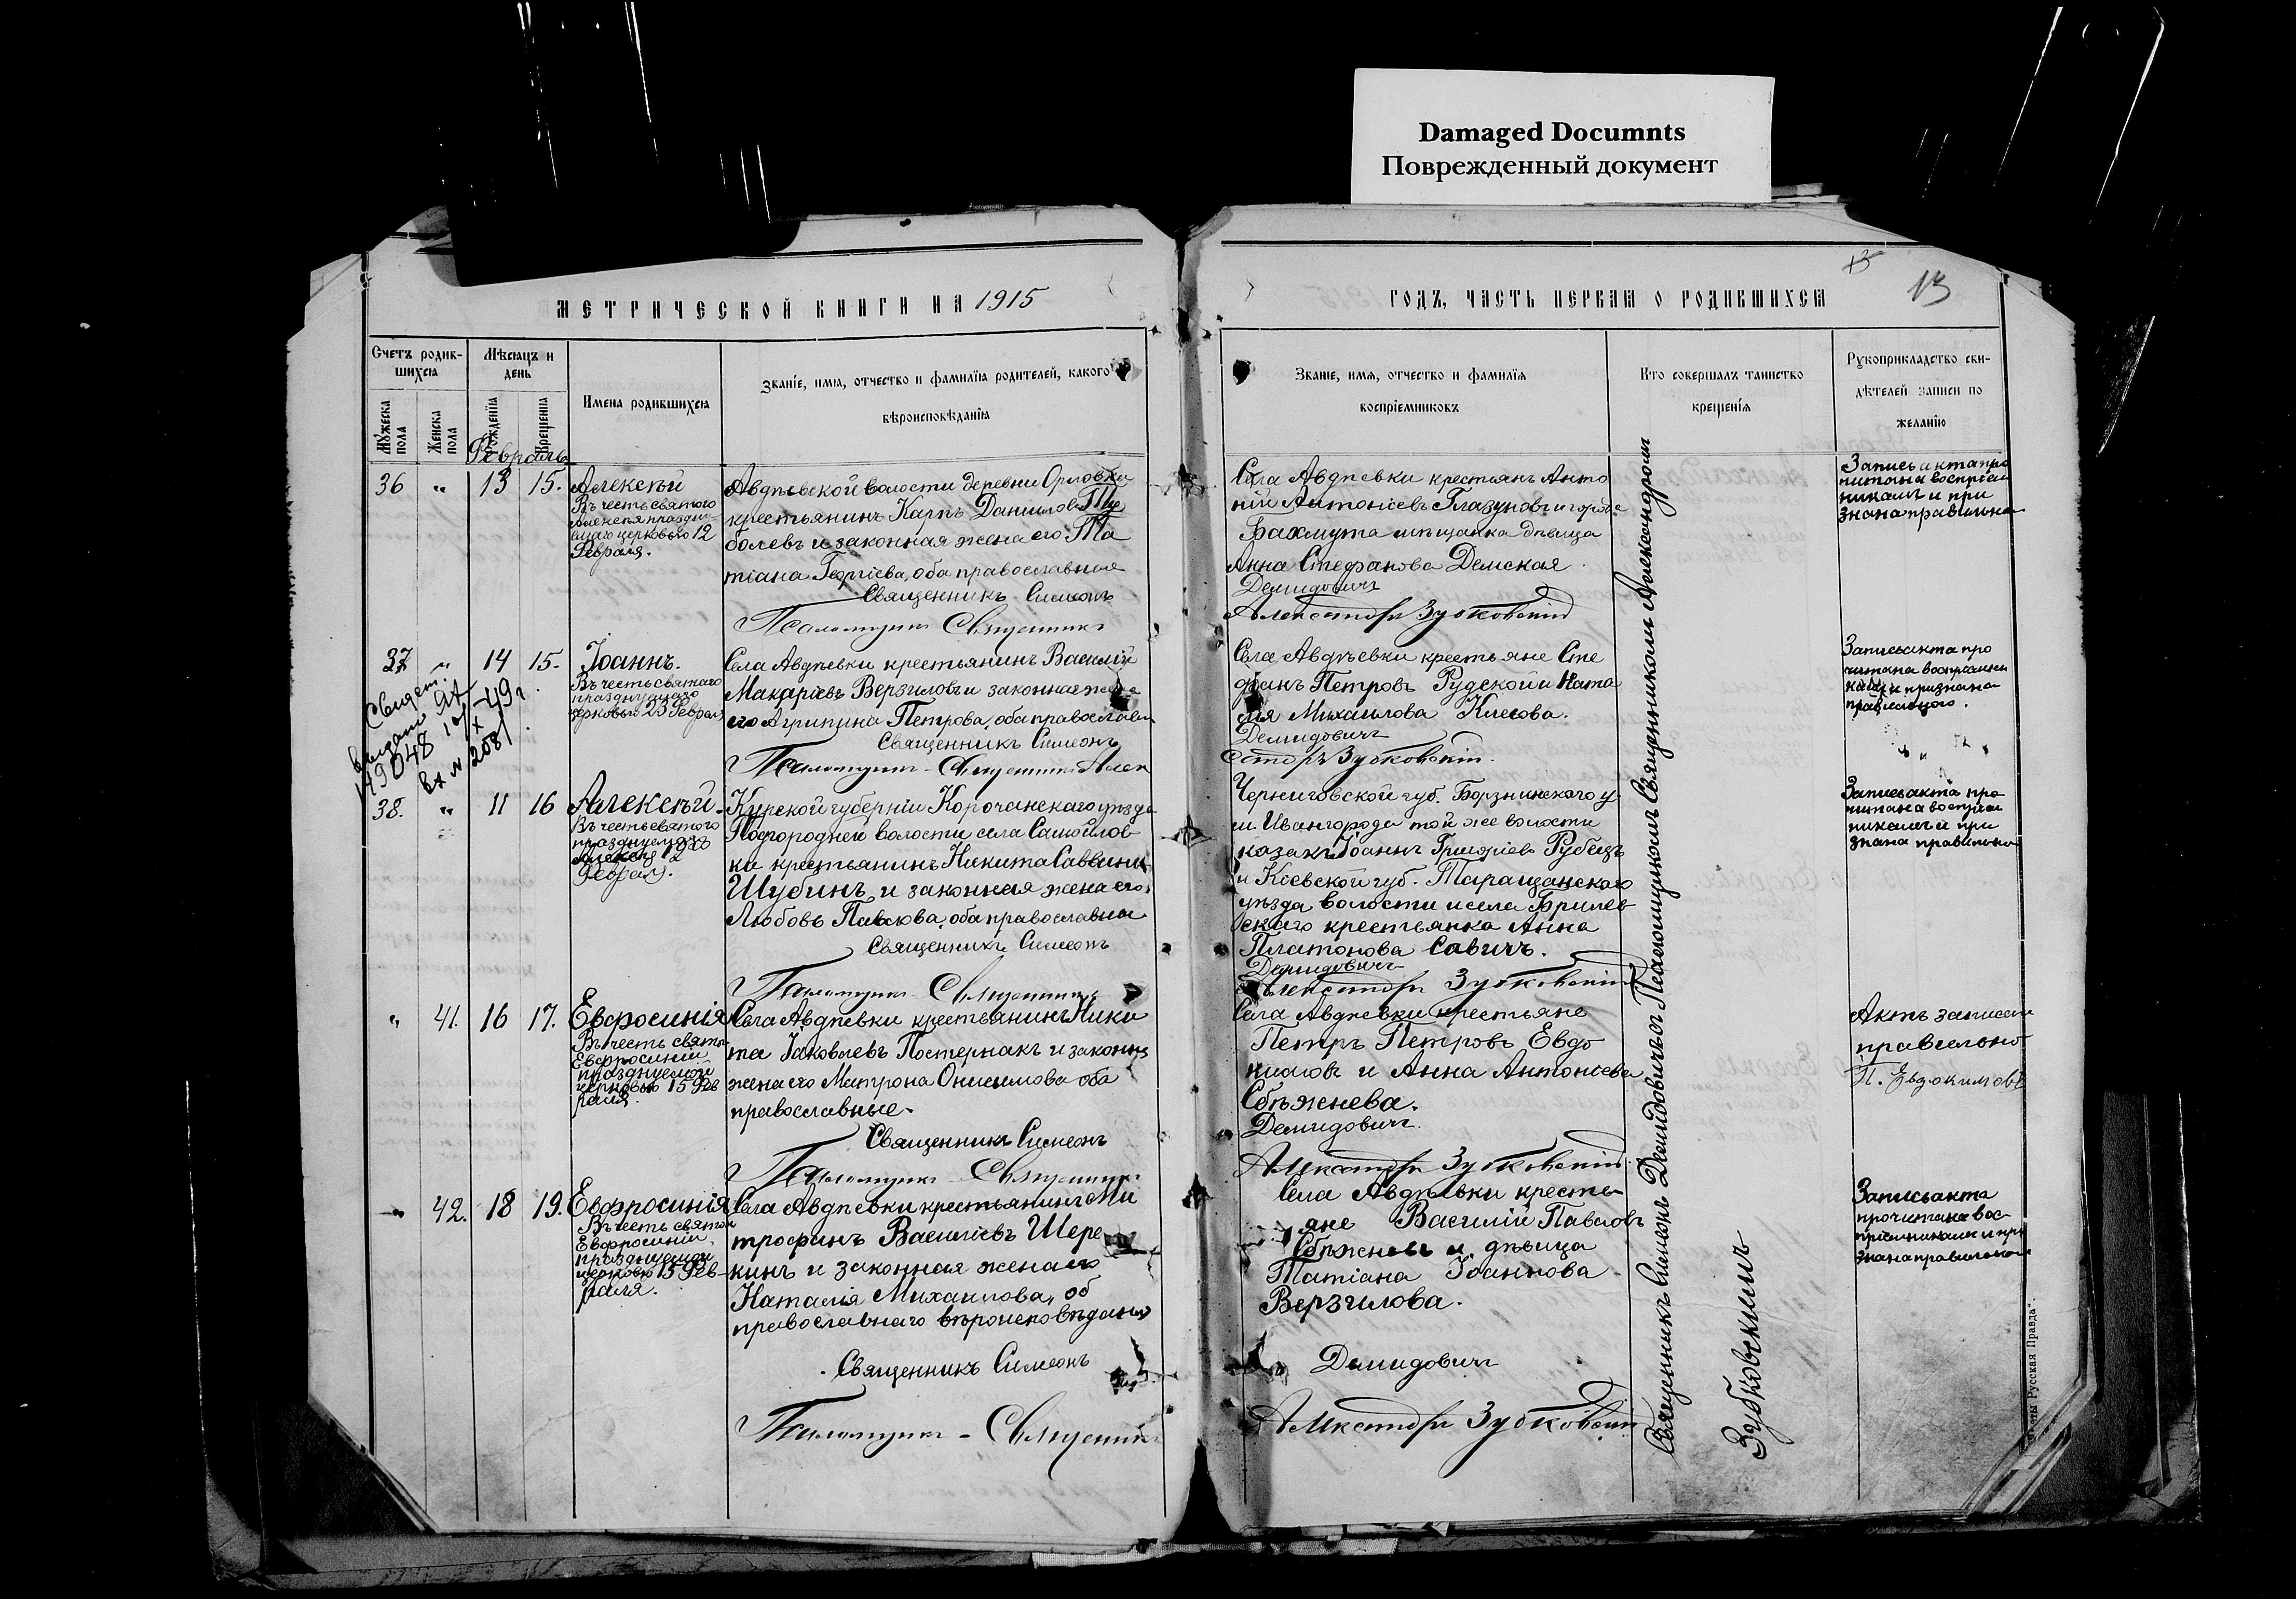 Damaged Documnts
Поврежденный документ
МЕТРИЧЕСКОЙ КНИГИ НА 1915
ГОДЪ, ЧАСТЬ ПЕРВАЯ О РОДИВШИХСЯ
13
13
Счетъ родив-
шихся
Мужеска пола
Женска пола
Мѣсяцъ и
день
Рожденія
Крещенія
Имена родившихся
Званіе, имя, отчество и фамилія родителей, какого
вѣроисповѣданія
Званіе, имя, отчество и фамилія
воспріемниковъ
Кто совершалъ таинство
крещенія
Рукоприкладство сви-
дѣтелей записи по
желанію
Февраль
36 „ 13 15. Алексѣй
Въ честь святого
Алексѣя праздну
емаго церковью 12
Февраля.
Авдѣевской волости деревни Орловки
крестьянинъ Карпъ Даниловъ Ту
болевъ и законная жена его Та
тіана Георгіева, оба православные
Священникъ Симеонъ
Псаломщикъ Священникъ
Села Авдѣевки крестьянъ Анто
ній Антоніевъ Глазуновъ и города
Бахмута мѣщанка дѣвица
Анна Стефанова Демская.
Демидовичъ
Александръ Зубковскій
Запись акта про
читана воспріем
никамъ и при
знана правильно
37 „ 14 15. Іоаннъ.
Въ честь святаго
празднуемаго
церковью 23 Февраля
Свидет.
выдано
49 г.
Села Авдѣевки крестьянинъ Василій
Макаріевъ Верзиловъ и законная жена
его Агрипина Петрова, оба православн
Священникъ Симеонъ
Псаломщикъ-Священникъ Алек
Села Авдѣевки крестьяне Сте
фанъ Петровъ Рудской и Ната
лія Михаилова Клесова.
Демидовичъ
сандръ Зубковскій.
Запись акта про
читана воспріемни
камъ и признана
правильною.
38. „ 11 16 Алексѣй.
Въ честь святого
празднуемаго
Алексѣя 12
Февраля.
Курской губерніи Корочанскаго уѣзда
Подгородней волости села Самойлов
ки крестьянинъ Никита Саввинъ
Шубинъ и законная жена его
Любовь Павлова, оба православны
Священникъ Симеонъ
Псаломщикъ Священникъ
Черниговской губ. Борзнинскаго у.
м. Ивангорода той же волости
казакъ Іоаннъ Григоріевъ Рубецъ
и Кіевской губ. Таращанскаго
уѣзда волости и села Брилев
скаго крестьянка Анна
Платонова Савичъ.
Демидовичъ
Александръ Зубковскій
Запись акта про
читана воспріем
никамъ и при
знана правильно
„ 41. 16 17. Евфросинія
Въ честь святой
Евфросиніи
празднуемой
церковью 15 Фев
раля.
Села Авдѣевки крестьянинъ Ники
та Іаковлевъ Постернакъ и законная
жена его Матрона Онисимова оба
православные.
Священникъ Симеонъ
Псаломщикъ Священникъ
Села Авдѣевки крестьяне
Петръ Петровъ Евдо
кимовъ и Анна Антоніева
Сбѣжнева.
Демидовичъ.
Александръ Зубковскій.
Актъ записанъ
правильно
П. Евдокимовъ
„ 42. 18 19. Евфросинія
Въ честь святой
Евфросиніи,
празднуемой
церковью 15 Фев-
раля.
Села Авдѣевки крестьянинъ Ми
трофанъ Василіевъ Шере
кинъ и законная жена его
Наталія Михаилова, об
православнаго вѣроисповѣданія
Священникъ Симеонъ
Псаломщикъ-Священникъ
Села Авдѣевки кресть-
яне Василій Павловъ
Сбѣжневъ и дѣвица
Татіана Іоаннова
Верзилова.
Демидовичъ
Александръ Зубковскій
Священникъ Симеонъ Демидовичъ съ Псаломщикомъ Священникомъ Александромъ
Зубковскимъ
Запись акта
прочитана вос-
пріемникамъ и при
знана правильною
Русская Правда".